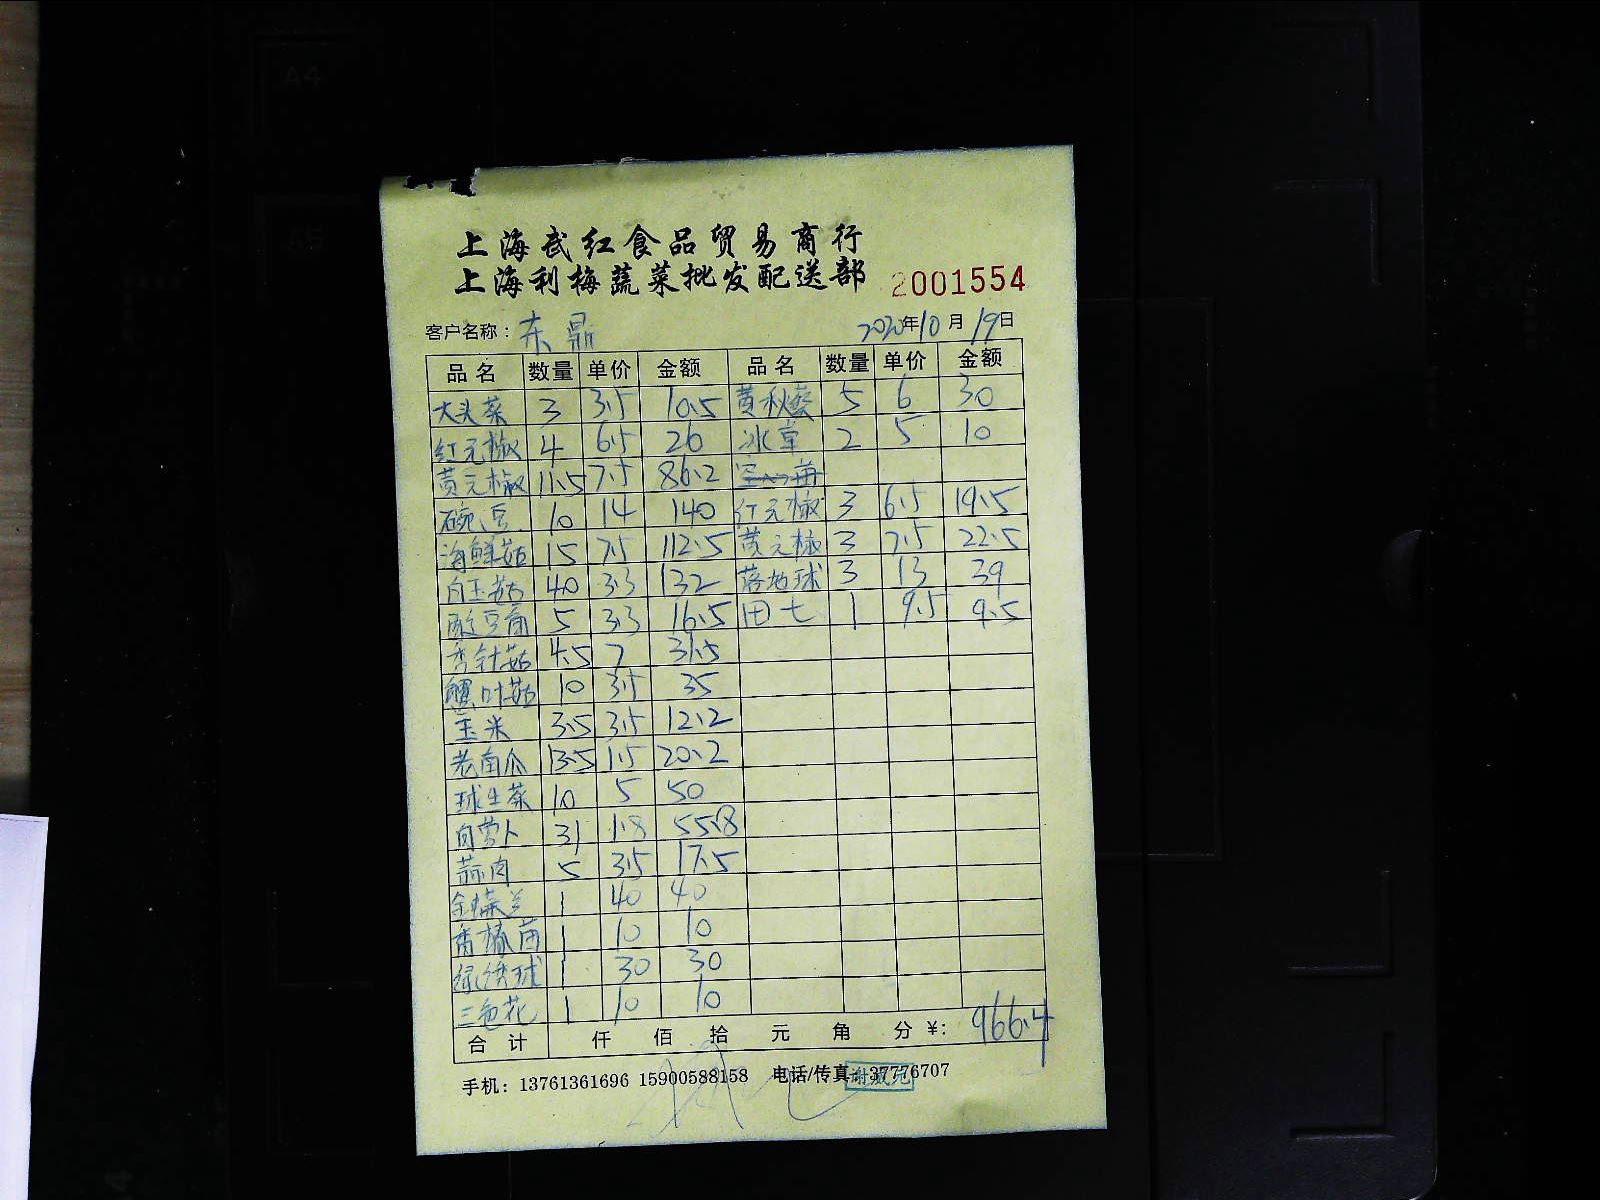 上海武红食品贸易商行
上海利梅蔬菜批发配送部 2001554
客户名称：东鼎 2020年10月19日
品名 数量 单价 金额 品名 数量 单价 金额
大头菜 3 3.5 10.5 黄秋葵 5 6 30
红元椒 4 6.5 26 冰草 2 5 10
黄元椒 11.5 7.5 86.2
碗豆 10 14 140 红元椒 3 6.5 19.5
海鲜菇 15 7.5 112.5 黄元椒 3 7.5 22.5
白玉菇 40 3.3 132 3 13 39
酸豆角 5 3.3 16.5 田七 1 9.5 9.5
杏针菇 4.5 7 31.5
蟹叶菇 10 3.5 35
玉米 3.5 3.5 12.2
老南瓜 13.5 1.5 20.2
球生菜 10 5 50
白萝卜 31 1.8 55.8
蒜肉 5 3.5 17.5
1 40 40
1 10 10
绿绣球 1 30 30
三色花 1 10 10
合计 仟 佰 拾 元 角 分 ¥: 966.4
手机：13761361696 15900588158 电话/传真：37776707